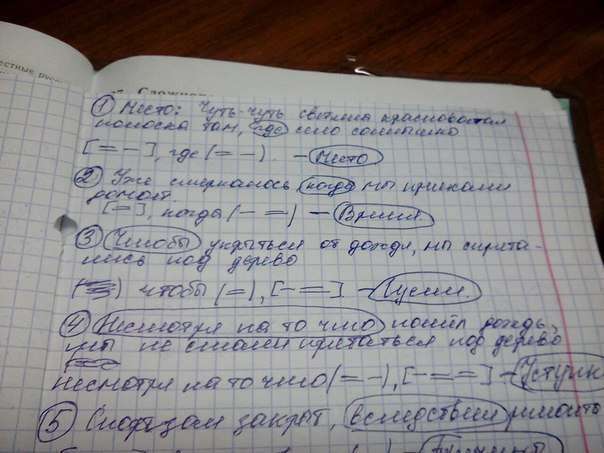 естные
Сложно
① Место: Чуть-чуть светила красноватая
полоска там, где село солнышко
[= -], где (= -). - Место
② Уже смеркалось когда мы приехали
домой.
[=], когда (- =) - Время.
③ Чтобы укрыться от дождя, мы спрята-
лись под дерево
( ) чтобы (=), [- =] -
④ Несмотря на то что пошёл дождь,
мы не стали прятаться под дерево
несмотря на то что (= -), [- = =] - Уступк
⑤ закрыт, вследствии ремонта